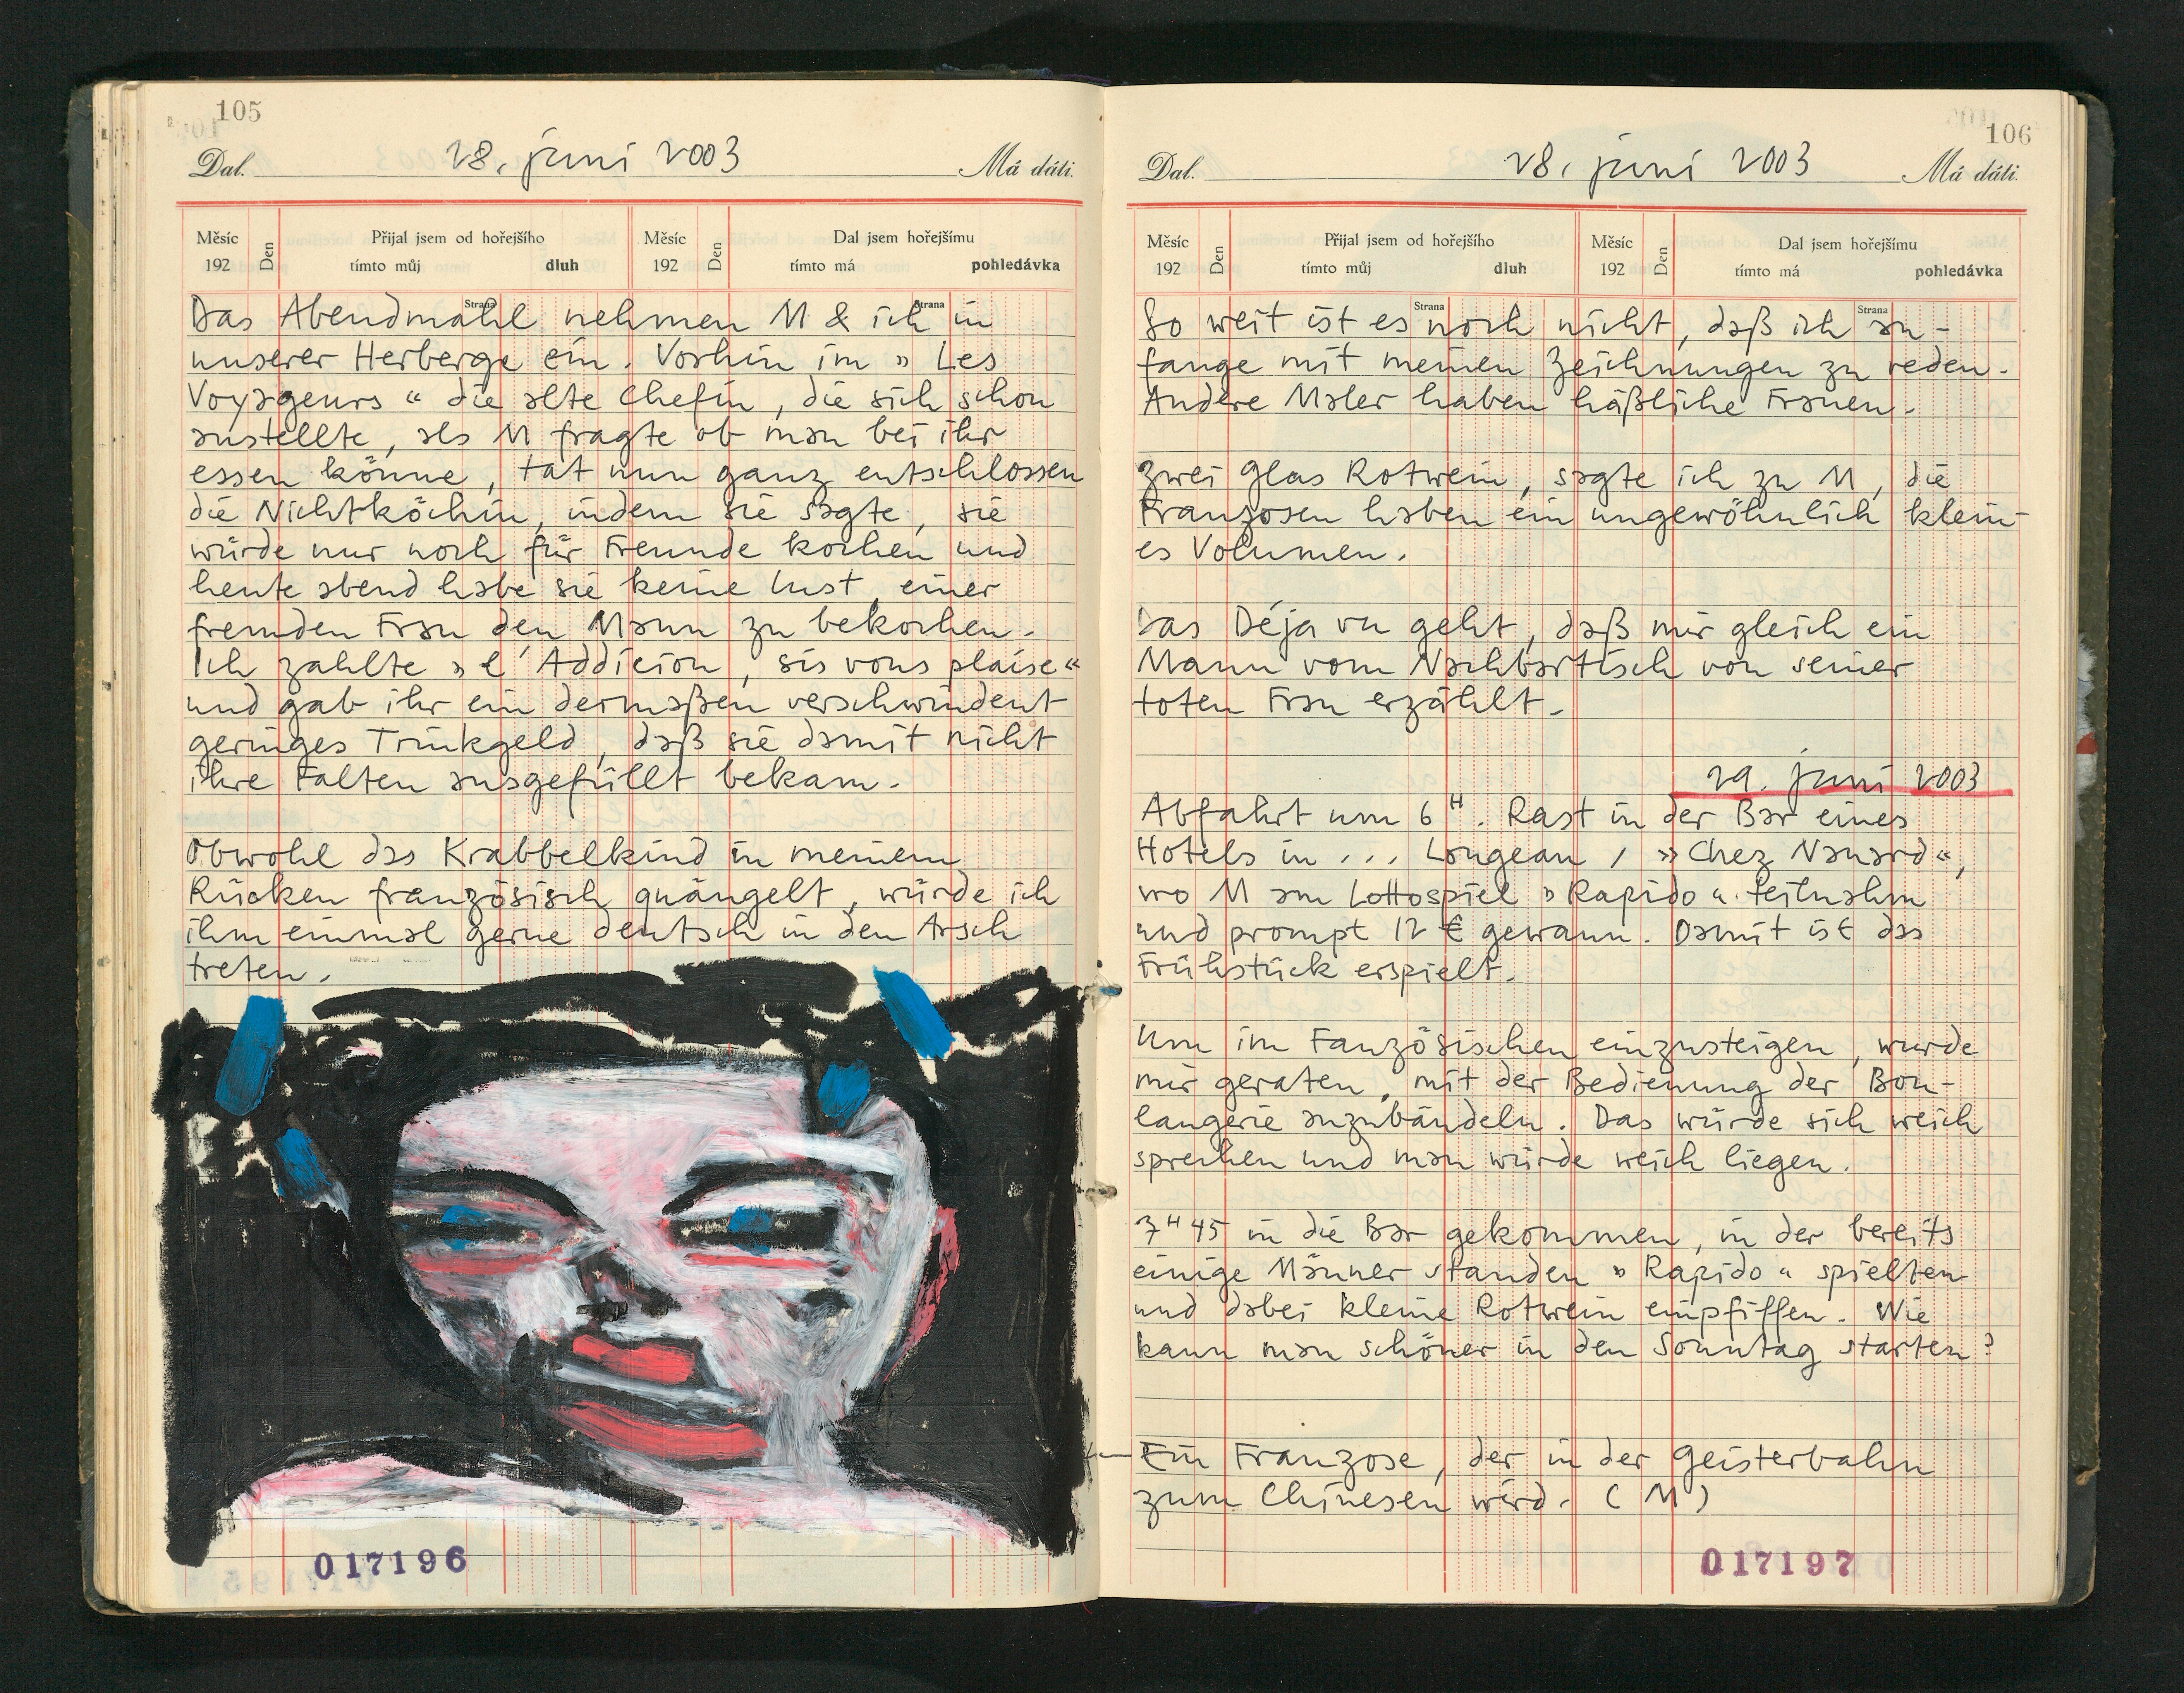 105
Dal. 28. juni 2003 Má dáti.
Měsíc 192 Den Přijal jsem od hořejšího tímto můj dluh Měsíc 192 Den Dal jsem hořejšímu tímto má pohledávka
Strana Strana
Das Abendmahl nehmen M & ich in
unserer Herberge ein. Vorhin im » Les
Voyageurs « die alte Chefin, die sich schon
anstellte, als M fragte ob man bei ihr
essen könne, tat nun ganz entschlossen
die Nichtköchin, indem sie sagte, sie
würde nur noch für Freunde kochen und
heute abend habe sie keine Lust, einer
fremden Frau den Mann zu bekochen.
Ich zahlte » l' Addicion, sis vous plaise «
und gab ihr ein dermaßen verschwindent
geringes Trinkgeld, daß sie damit nicht
ihre Falten ausgefüllt bekam.
Obwohl das Krabbelkind in meinem
Rücken französisch quängelt, würde ich
ihm einmal gerne deutsch in den Arsch
treten.
017196
106
Dal. 28. juni 2003 Má dáti.
Měsíc 192 Den Přijal jsem od hořejšího tímto můj dluh Měsíc 192 Den Dal jsem hořejšímu tímto má pohledávka
Strana Strana
So weit ist es noch nicht, daß ich an-
fange mit meinen Zeichnungen zu reden.
Andere Maler haben häßliche Frauen.
Zwei Glas Rotwein, sagte ich zu M, die
Franzosen haben ein ungewöhnlich klein-
es Volumen.
Das Déja vu geht, daß mir gleich ein
Mann vom Nachbartisch von seiner
toten Frau erzählt.
29. juni 2003
Abfahrt um 6H. Rast in der Bar eines
Hotels in ... Longeau, » Chez Nanard «,
wo M am Lottospiel » Rapido « teilnahm
und prompt 12 € gewann. Damit ist das
Frühstück erspielt.
Um im Fanzösischen einzusteigen, wurde
mir geraten, mit der Bedienung der Bou-
langerie anzubändeln. Das würde sich weich
sprechen und man würde weich liegen.
7H45 in die Bar gekommen, in der bereits
einige Männer standen » Rapido « spielten
und dabei kleine Rotwein einpfiffen. Wie
kann man schöner in den Sonntag starten?
← Ein Franzose, der in der Geisterbahn
zum Chinesen wird. (M)
017197